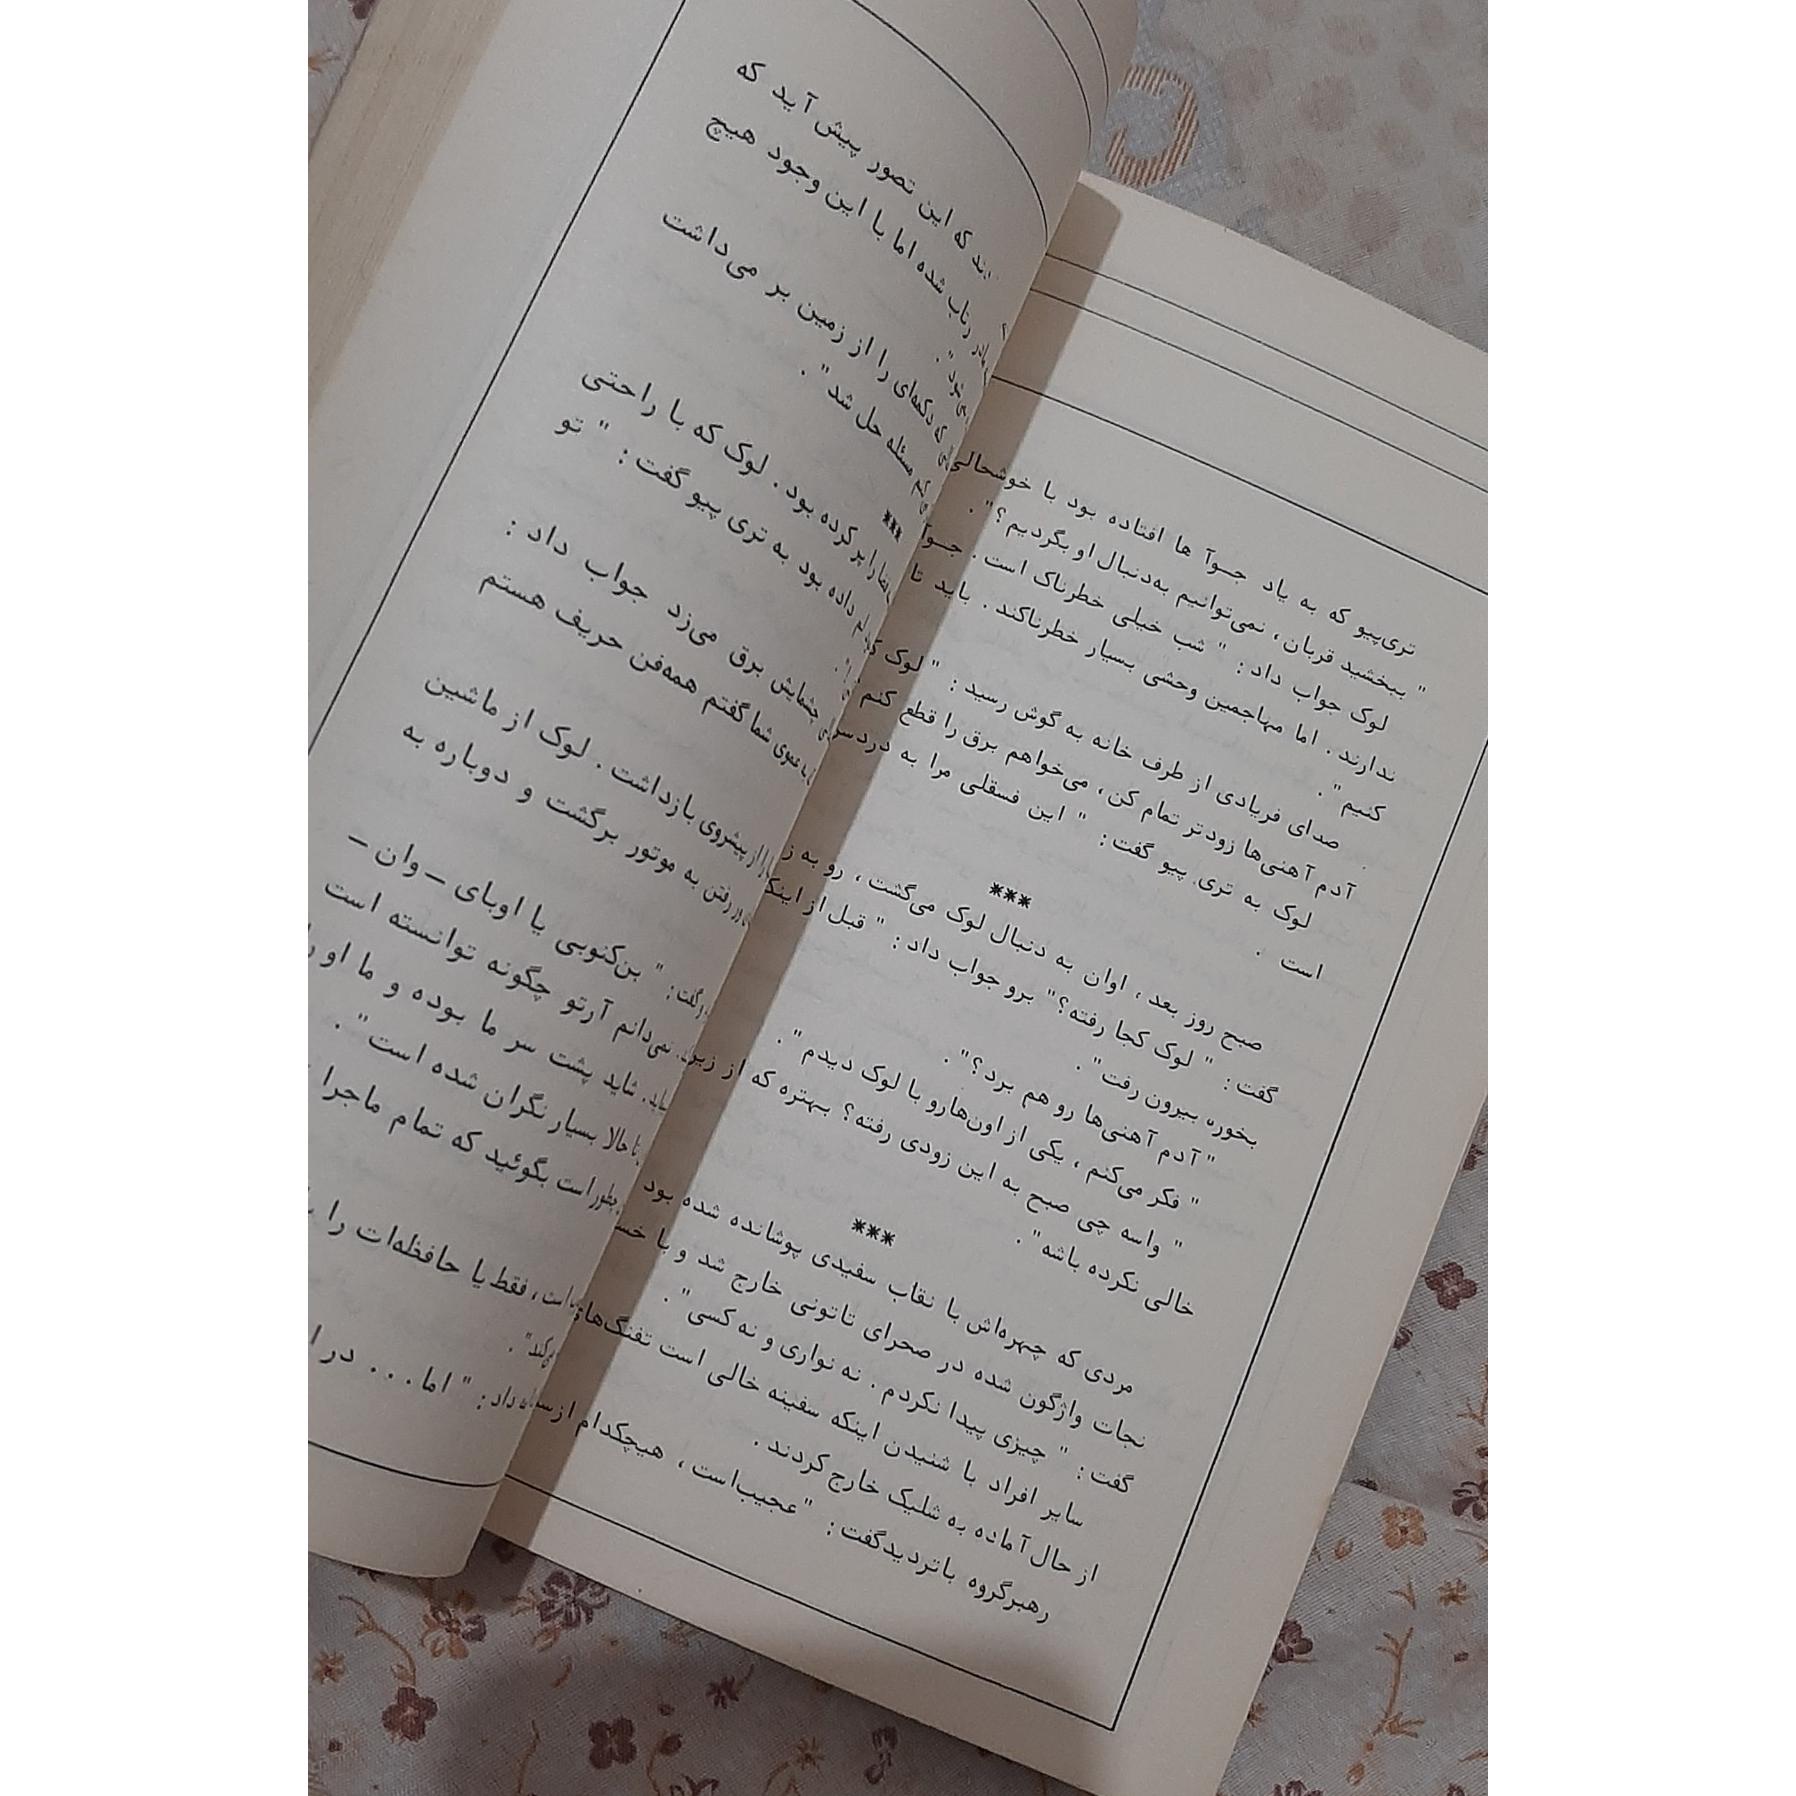 تری‌پیو که به یاد جـوآ ها افتاده بود با خوشحالی
" ببخشید قربان ، نمی‌توانیم به‌دنبال او بگردیم؟ " .
لوک جواب داد : " شب خیلی خطرناک است . جـوآ
ندارند . اما مهاجمین وحشی بسیار خطرناکند . باید تا
کنیم " .
صدای فریادی از طرف خانه به گوش رسید : " لوک
آدم آهنی‌ها زودتر تمام کن ، می‌خواهم برق را قطع کنم "
لوک به تری پیو گفت : " این فسقلی مرا به دردسر
است .
***
صبح روز بعد ، اوان به دنبال لوک می‌گشت ، رو به
گفت : " لوک کجا رفته؟ " برو جواب داد : " قبل از اینکه
بخوره بیرون رفت " .
" آدم آهنی‌ها رو هم برد؟ " .
" فکر می‌کنم ، یکی از اون‌هارو با لوک دیدم " .
" واسه چی صبح به این زودی رفته؟ بهتره که از زیر
خالی نکرده باشه " .
***
مردی که چهره‌اش با نقاب سفیدی پوشانده شده بود
نجات واژگون شده در صحرای تاتونی خارج شد و با
گفت : " چیزی پیدا نکردم . نه نواری و نه کسی " .
سایر افراد با شنیدن اینکه سفینه خالی است تفنگ‌های
از حال آماده به شلیک خارج کردند .
رهبرگروه باتردیدگفت : " عجیب‌است ، هیچکدام از
که این تصور پیش آید که
شده اما با این وجود هیچ
که دکمه‌ای را از زمین بر می‌داشت
مسئله حل شد " .
***
را پر کرده بود . لوک که با راحتی
داده بود به تری پیو گفت : " تو
چشمایش برق می‌زد جواب داد :
شما گفتم همه‌فن حریف هستم
از پیشروی بازداشت . لوک از ماشین
رفتن به موتور برگشت و دوباره به
گفت : " بن‌کنوبی یا اوبای – وان –
نمی‌دانم آرتو چگونه توانسته است
شاید پشت سر ما بوده و ما او
تا حالا بسیار نگران شده است " .
چطور است بگوئید که تمام ماجرا
است ، فقط یا حافظه‌ات را
می‌کند " .
داد : " اما . . . در